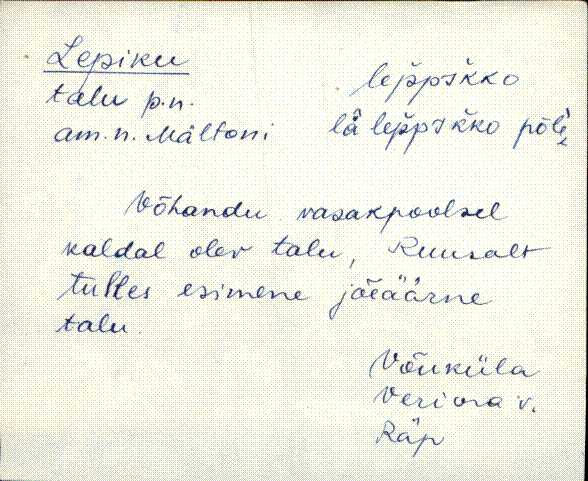 Lepiku
talu p.n.
am.n. Mältoni
lep̆pɪk̆ko
lä lep̆pɪk̆ko pōlè
Võhandu vasakpoolsel
kaldal olev talu, Ruusalt
tulles esimene jõeäärne
talu.
Võuküla
Veriora v.
Räp